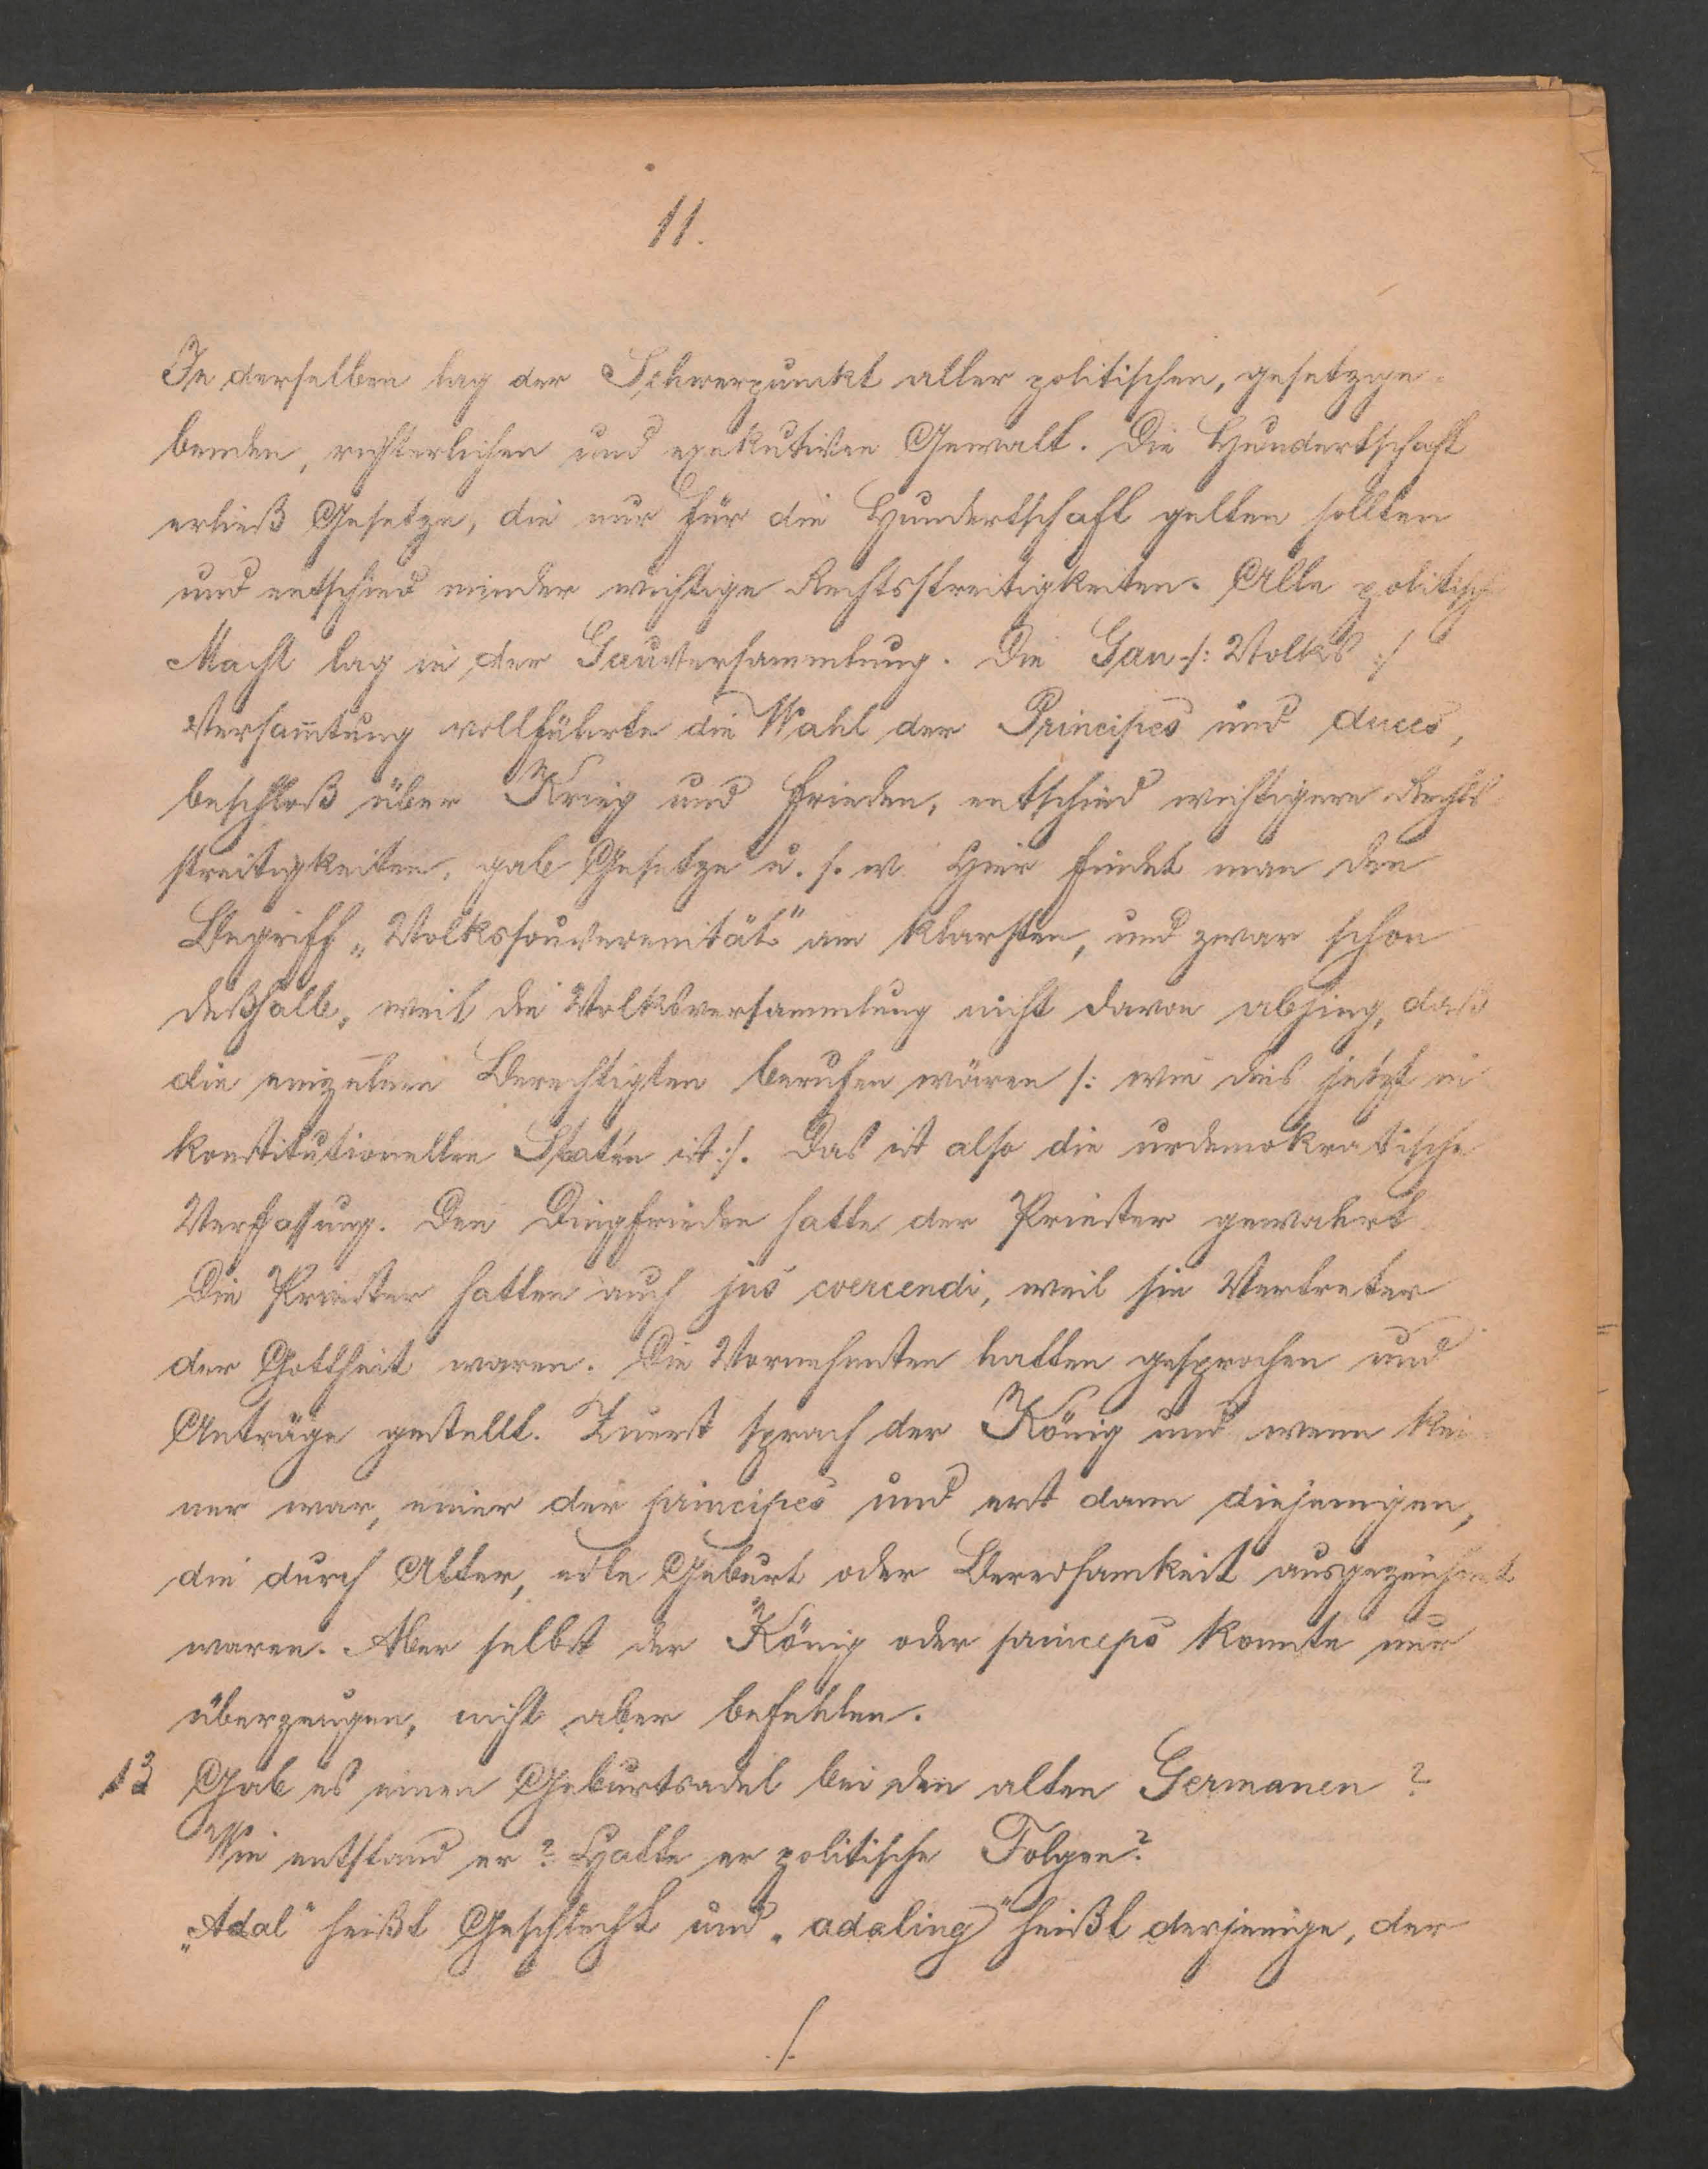 11.
In derselben lag der Schwerpunkt aller politischen, gesetzge-
benden, richterlichen und exekutiven Gewalt. Die Hundertschaft
erließ Gesetze, die nur für die Hundertschaft gelten sollten
und entschied minder wichtige Rechtsstreitigkeiten. Alle politische
Macht lag in der Gauversammlung. Die Gau-/: Volks :/
Versam̄lung vollführte die Wahl der Principes und duces,
beschloß über Krieg und Frieden, entschied wichtigere Rechts-
streitigkeiten, gab Gesetze u. s. w. Hier findet man den
Begriff „Volkssouverenität" am klarsten, und zwar schon
deßhalb, weil die Volksversammlung nicht davon abhing, daß
die einzelnen Berechtigten berufen wären /: wie dies jetzt in
konstitutionellen Staten ist :/. Das ist also die urdemokratische
Verfassung. Den Dingfrieden hatte der Priester gewahrt.
Die Priester hatten auch jus coercendi, weil sie Vertreter
der Gottheit waren. Die Vornehmsten hatten gesprochen und
Anträge gestellt. Zuerst sprach der König und wenn kei-
ner war, einer der principes und erst dann diejenigen,
die durch Alter, edle Geburt oder Beredsamkeit ausgezeichnet
waren. Aber selbst der König oder princeps konnte nur
überzeugen, nicht aber befehlen.
13 Gab es einen Geburtsadel bei den alten Germanen?
Wie entstand er? Hatte er politische Folgen?
„Adal" heißt Geschlecht und „adaling" heißt derjenige, der
./.